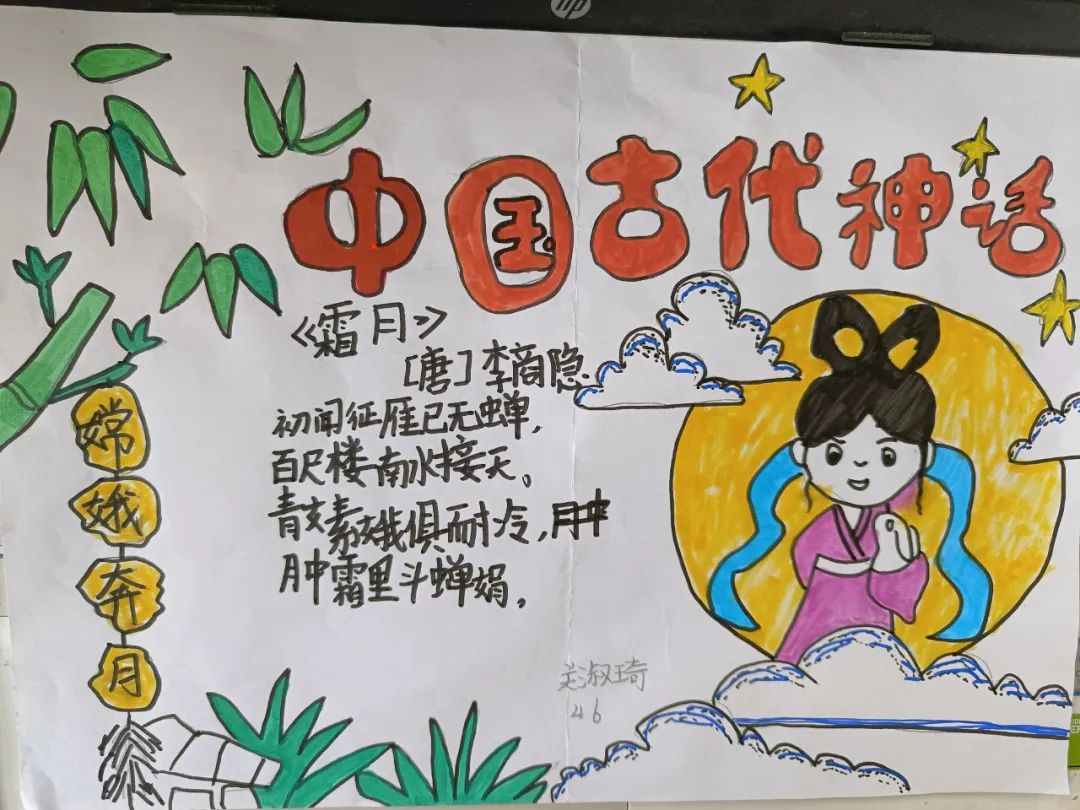 hp
中国古代神话
《霜月》
[唐]李商隐
初闻征雁已无蝉,
百尺楼南水接天。
青女素娥俱耐冷,月中
月中霜里斗蝉娟。
嫦娥奔月
淑琦
46